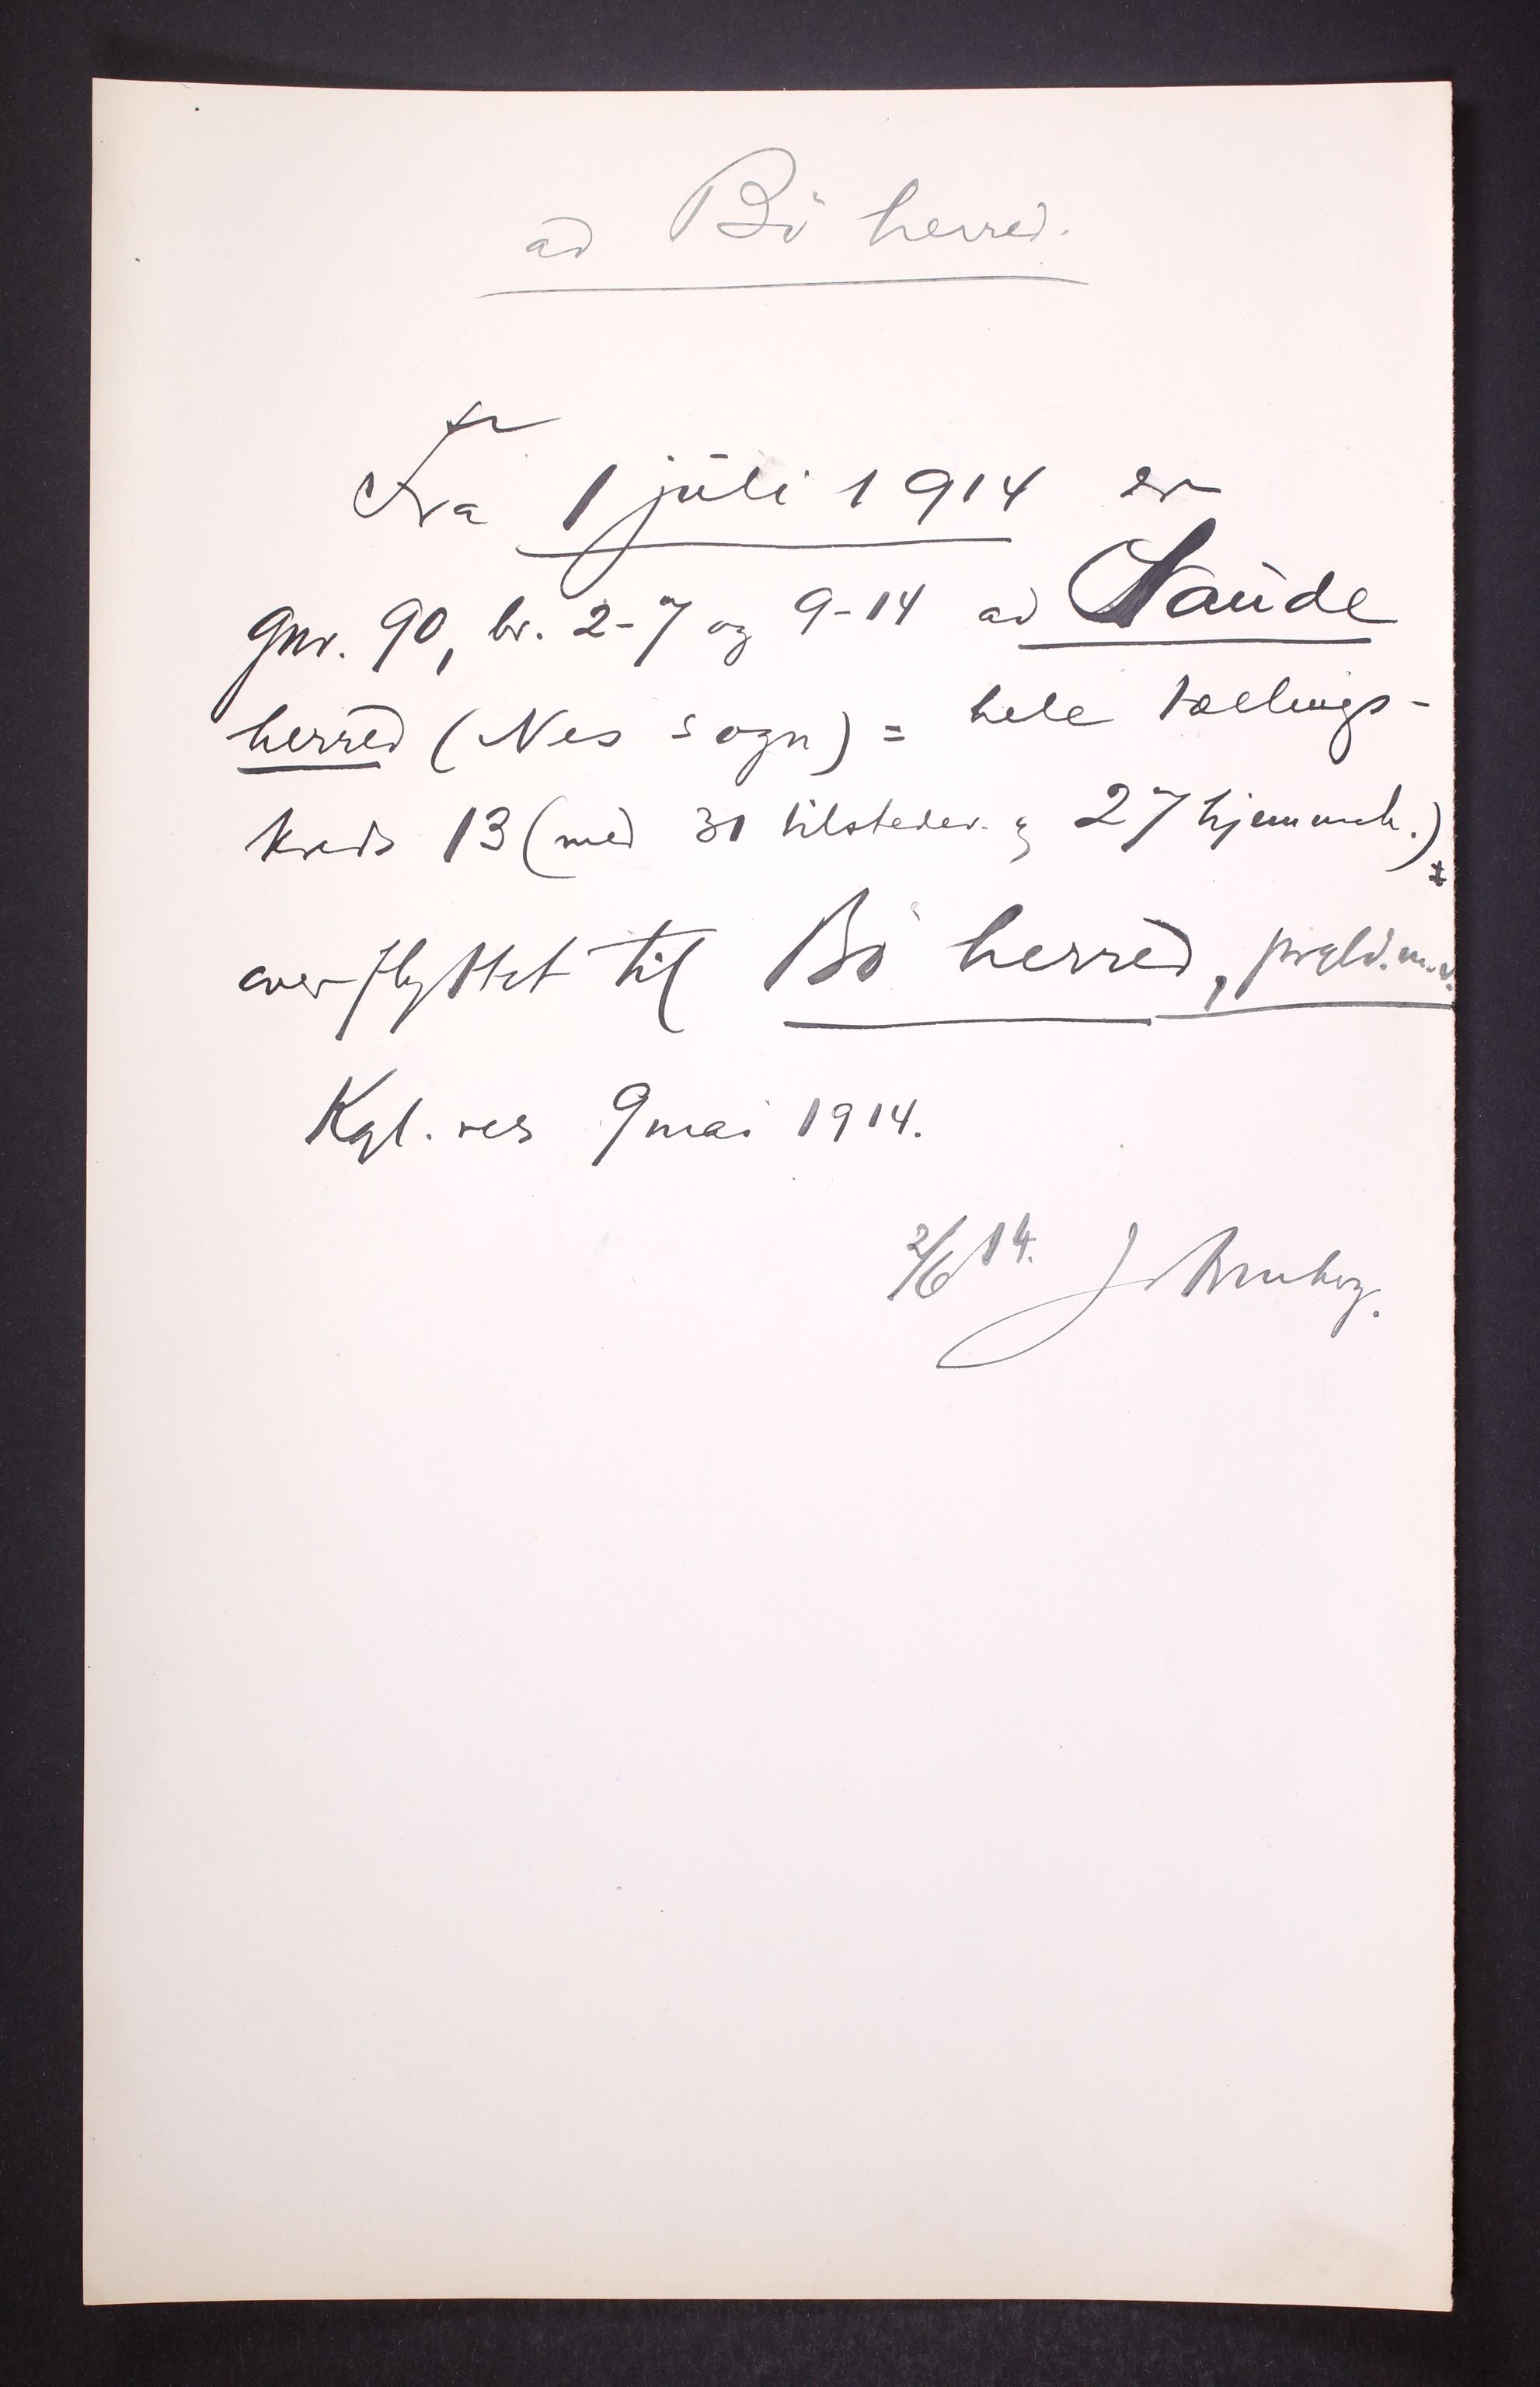 ad Bö herred.
Fra 1 juli 1914 er
gnr. 90, br. 2-7 og 9-14 av Saude
herred (Nes sogn) = hele tællings-
kreds 13 (med 31 tilstedev. og 27 hjemmeh.)
overflyttet til Bö herred, prgld. m.v.
Kgl. res 9 mai 1914.
2/6 14.